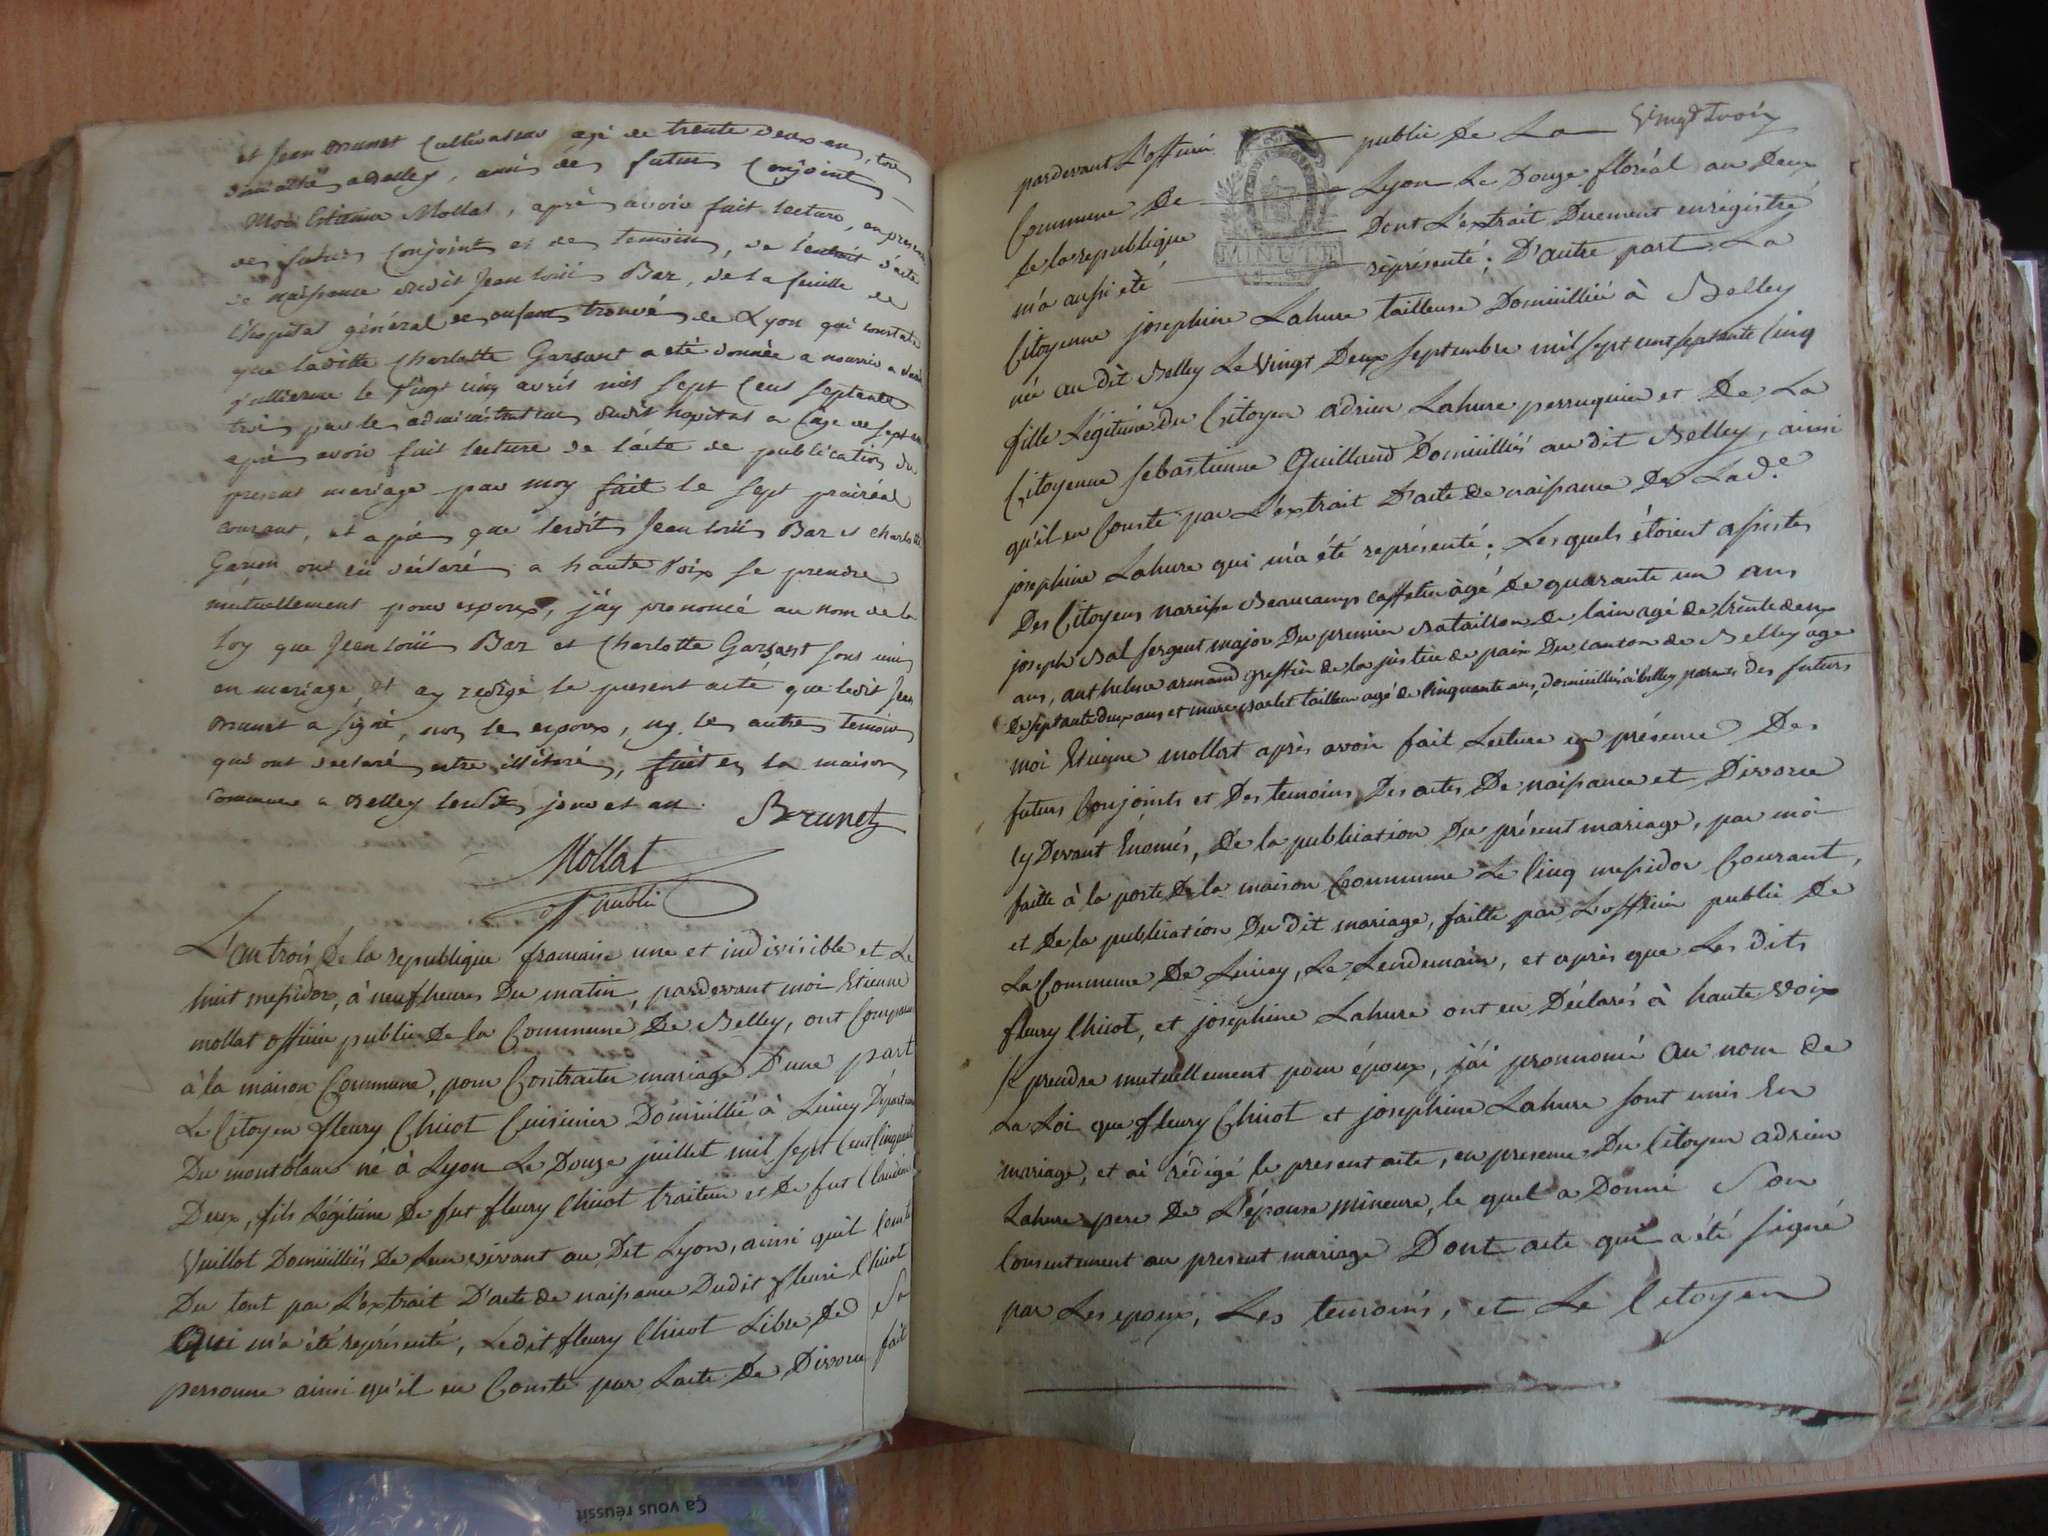 et Jean Brunet Cultivateur agé de trente deux ans, tous
domiciliés a Belley, amis des futurs Conjoints
Moi Estienne Mollat, après avoir fait lecture, en presence
des futurs Conjoints et des temoins, de l'extrait d'acte
de naissance dudit Jean Louis Bar, de la feuille de
l'hopital général des enfans trouvés de Lyon qui constate
que laditte Charlotte Garsant a eté donnée a nourrir a
le vingt cinq avril mil sept cens septante
trois par les administrateurs dudit hopital a l'age de sept
après avoir fait lecture de l'acte de publication du
present mariage par moy fait le sept prairéal
courant, et après que lesdits Jean Louis Bar et Charlotte
Garsen ont eu déclaré a haute voix se prendre
mutuellement pour espoux, j'ay prononcé au nom de la
loy que Jean Louis Bar et Charlotte Garsant sont unis
en mariage, et ay redigé le present acte que ledit Jean
Brunet a signé, non les espoux, ny les autres temoins
qui ont declaré estre illiteré, fait en la maison
commune a Belley lesdits jour et an. Brunet
Mollat
off publi
L'an trois de la republique francaise une et indivisible et Le
huit messidor, à neuf heures Du matin, pardevant moi Etienne
mollat officier public De la Commune De Belley, ont Comparu
à la maison Commune, pour Contracter mariage D'une part
Le Citoyen fleury Chicot Cuisinier Domicillié à Lucey Departem
Du montblanc né à Lyon Le Douze juillet mil sept Cent Cinquante
Deux, fils Légitime De fut fleury Chicot traiteur et De fut Claudine
Vuillot Domicilliés De Leur vivant au Dit Lyon, ainsi quil Conste
Du tout par L'extrait D'acte de naissance Dudit fleuri Chicot
Qui m'a été représenté, Ledit fleury Chicot Libre De Sa
personne ainsi qu'il en Conste par L'acte De Divorce fait
Vingt trois
pardevant L'officié public De La
Commune De Lyon Le Douze floréal an Deux
De la republique Dont L'extrait Duement enregistré
m'a aussi eté représenté; D'autre part La
MINUTE
Citoyenne josephine Lahure tailleuse Domicilliée à Belley
née au dit Belley Le Vingt Deux septembre mil sept cent septante Cinq
fille Légitime du Citoyen adrien Lahure perruquier et De La
Citoyenne sebastienne Guilland Domicilliés au dit Belley, ainsi
qu'il en Conste par L'extrait D'acte de naissance De Lade
josephine Lahure qui m'a été représenté; Lesquels étoient assistés
Des Citoyens narcisse Beaucamp Caffetier âgé De quarante un ans
joseph Bal sergent major Du premier Bataillon De lain agé de trente deux
ans, anthelme armand greffier de la justice de paix Du canton de Belley age
De septante deux ans et marc tailleur agé de Cinquante ans, domicilliés à belley parents des futurs
moi Etienne mollat après avoir fait Lecture en présence Des
futurs Conjoints et Des temoins Des actes De naissance et Divorce
Cy Devant Enomés, De la publication Du présent mariage, par moi
faitte à la porte De la maison Commune Le Cinq messidor Courant,
et De la publication Du dit mariage, faitte par L'officier public De
La Commune De Lucey, Le Lendemain, et après que Les dits
fleury Chicot, et josephine Lahure ont eu Déclarés à haute voix
se prendre mutuellement pour époux, j'ai prononcé au nom De
La Loi que fleury Chicot et josephine Lahure sont unis En
mariage, et ai rédigé le present acte, en presence Du Citoyen adrien
Lahure pere De L'épouse mineure, le quel a Donné Son
Consentement au present mariage Dont acte qui a été signé
par Les epoux, Les temoins, et Le Citoyen
Ça vous réussit